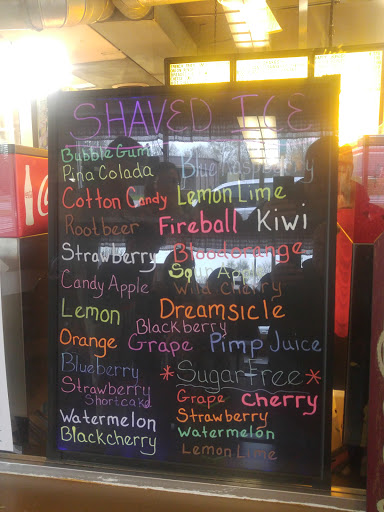 SHAVED ICE
Bubble Gum
Blue Raspberry
Pina Colada
Cotton Candy Lemon Lime
Rootbeer Fireball Kiwi
Strawberry Bloodorange
Sour Apple
Candy Apple Wild Cherry
Lemon Dreamsicle
Blackberry
Orange Grape Pimp Juice
Blueberry *Sugar Free*
Strawberry Shortcake
Grape Cherry
Strawberry
Watermelon Watermelon
Blackcherry Lemon Lime